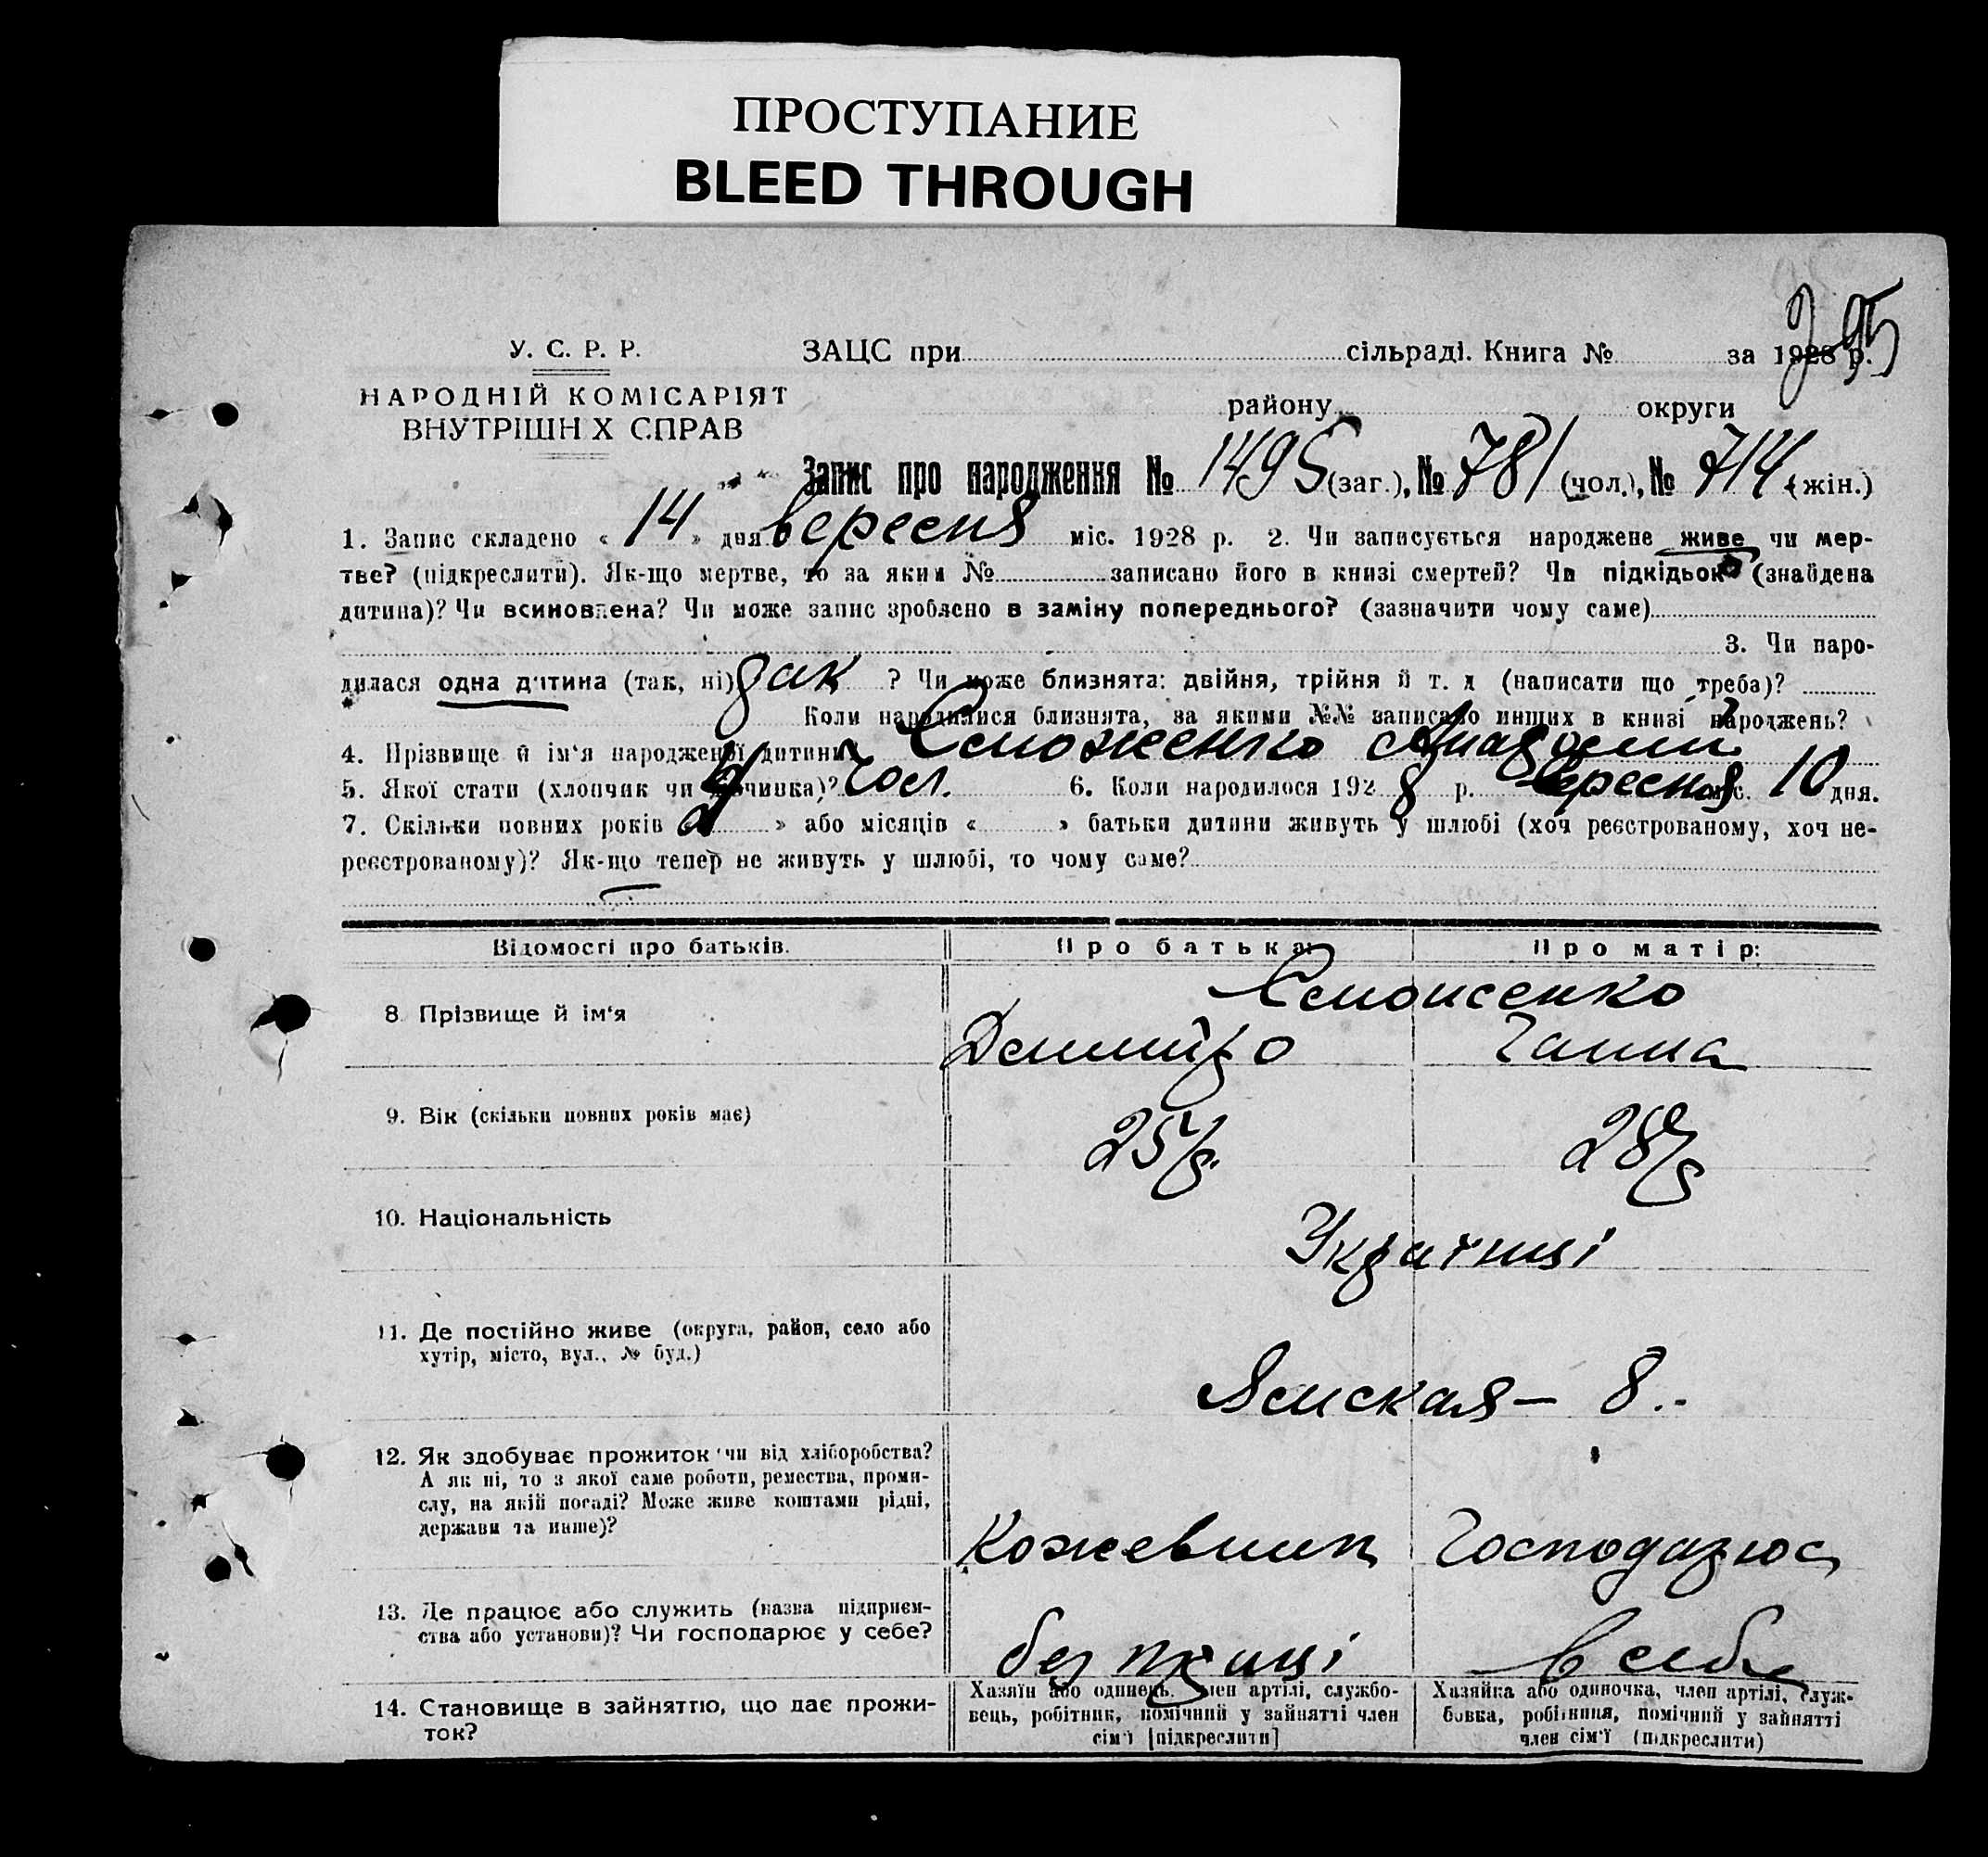 ПРОСТУПАНИЕ
BLEED THROUGH
295
У. С. Р. Р.
ЗАЦС при сільраді. Книга № за 1928 р.
НАРОДНІЙ КОМІСАРІЯТ
ВНУТРІШН Х СПРАВ
району округи
Запис про народження № 1495 (заг.), № 781 (чол.), № 714 (жін.)
1. Запис складено « 14 » дня вересня міс. 1928 р. 2. Чи записується народжене живе чи мер-
тве? (підкреслити). Як-що мертве, то за яким № записано його в книзі смертей? Чи підкідьок (знайдена
дитина)? Чи всиновлена? Чи може запис зроблено в заміну попереднього? (зазначити чому саме)
3. Чи наро-
дилася одна дитина (так, ні) так ? Чи може близнята: двійня, трійня й т. д (написати що треба)?
Коли народилися близнята, за якими №№ записано инших в книзі народжень?
4. Прізвище й ім'я народженої дитини
5. Якої стати (хлопчик чи дівчинка)? чол. 6. Коли народилося 1928 р. вересня міс. 10 дня.
7. Скільки повних років « 2 » або місяців « » батьки дитини живуть у шлюбі (хоч реєстрованому, хоч не-
реєстрованому)? Як-що тепер не живуть у шлюбі, то чому саме?
Відомості про батьків. Про батька: Про матір:
8. Прізвище й ім'я
Дмитро Ганна
9. Вік (скільки повних років має) 25 р. 28 р
10. Національність
Українці
11. Де постійно живе (округа, район, село або
хутір, місто, вул., № буд.)
Ямская – 8..
12. Як здобуває прожиток чи від хліборобства?
А як ні, то з якої саме роботи, ремества, проми-
слу, на якій посаді? Може живе коштами рідні,
держави та инше)?
Кожевник Господарюс
13. Де працює або служить (назва підприєм-
ства або установи)? Чи господарює у себе?
без праці в себе
14. Становище в зайняттю, що дає прожи-
ток?
Хазяїн або одинець, член артілі, службо-
вець, робітник, помічний у зайнятті член
сім'ї [підкреслити]
Хазяйка або одиночка, член артілі, служ-
бовка, робітниця, помічний у зайнятті
член сім'ї (підкреслити)